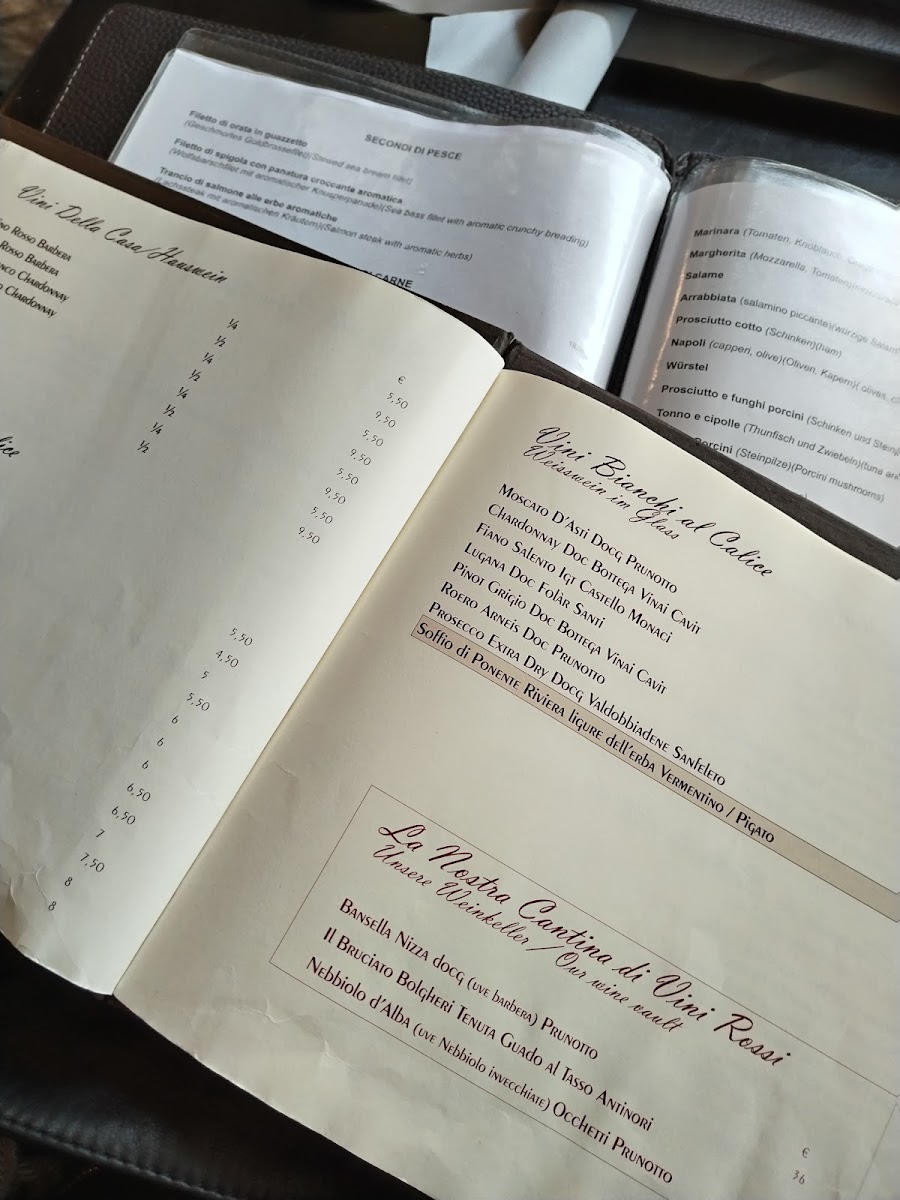 SECONDI DI PESCE
Filetto di orata in guazzetto
(Geschmortes Goldbrassefilet)(Stewed sea breem filet)
Filetto di spigola con panatura croccante aromatica
(Wolfsbarschfilet mit aromatischer Knusperpanade)(Sea bass fillet with aromatic crunchy breading)
Trancio di salmone alle erbe aromatiche
(Lachssteak mit aromatischen Kräutern)(Salmon steak with aromatic herbs)
CARNE
Marinara (Tomaten, Knoblauch,
Margherita (Mozzarella, Tomaten)
Salame
Arrabbiata (salamino piccante)(würzige Salami
Prosciutto cotto (Schinken)(ham)
Napoli (capperi, olive)(Oliven, Kapern)( olives,
Würstel
Prosciutto e funghi porcini (Schinken und
Tonno e cipolle (Thunfisch und Zwiebeln)(tuna
Porcini (Steinpilze)(Porcini mushrooms)
Vini Della Casa/Hauswein
Rosso Barbera
Rosso Barbera
Chardonnay
Chardonnay
€
¼ 5,50
½ 9,50
¼ 5,50
½ 9,50
¼ 5,50
½ 9,50
¼ 5,50
½ 9,50
5,50
4,50
5
5,50
6
6
6
6,50
6,50
7
7,50
8
8
Vini Bianchi al Calice
Weisswein im Glass
Moscato D'Asti Docg Prunotto
Chardonnay Doc Bottega Vinai Cavit
Fiano Salento Igt Castello Monaci
Lugana Doc Folàr Santi
Pinot Grigio Doc Bottega Vinai Cavit
Roero Arneis Doc Prunotto
Prosecco Extra Dry Docg Valdobbiadene Sanfeleto
Soffio di Ponente Riviera ligure dell'erba Vermentino / Pigato
La Nostra Cantina di Vini Rossi
Unsere Weinkeller / Our wine vault
€
Bansella Nizza docg (uve barbera) Prunotto 36
Il Bruciato Bolgheri Tenuta Guado al Tasso Antinori
Nebbiolo d'Alba (uve Nebbiolo invecchiate) Occhetti Prunotto